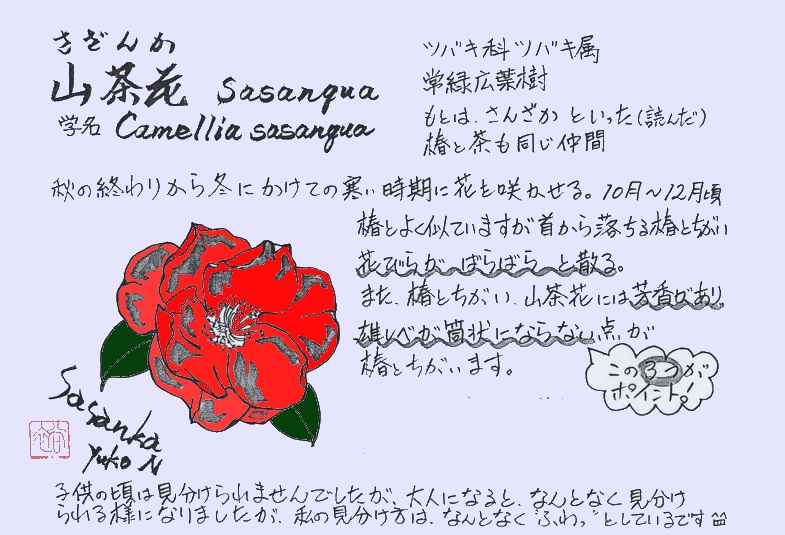 さざんか
山茶花 Sasanqua
学名 Camellia sasanqua
ツバキ科ツバキ属
常緑広葉樹
もとは、さんざか といった(読んだ)
椿と茶も同じ仲間
秋の終わりから冬にかけての寒い時期に花を咲かせる。10月～12月頃
椿とよく似ていますが首から落ちる椿とちがい
花びらが ばらばら と散る。
また、椿とちがい、山茶花には芳香があり
雄しべが筒状にならない点が
椿とちがいます。
この3つが
ポイント!
Sasanka
Yuko N
子供の頃は見分けられませんでしたが、大人になると、なんとなく見分け
られる様になりましたが、私の見分け方は、なんとなく“ふわっ”としているです